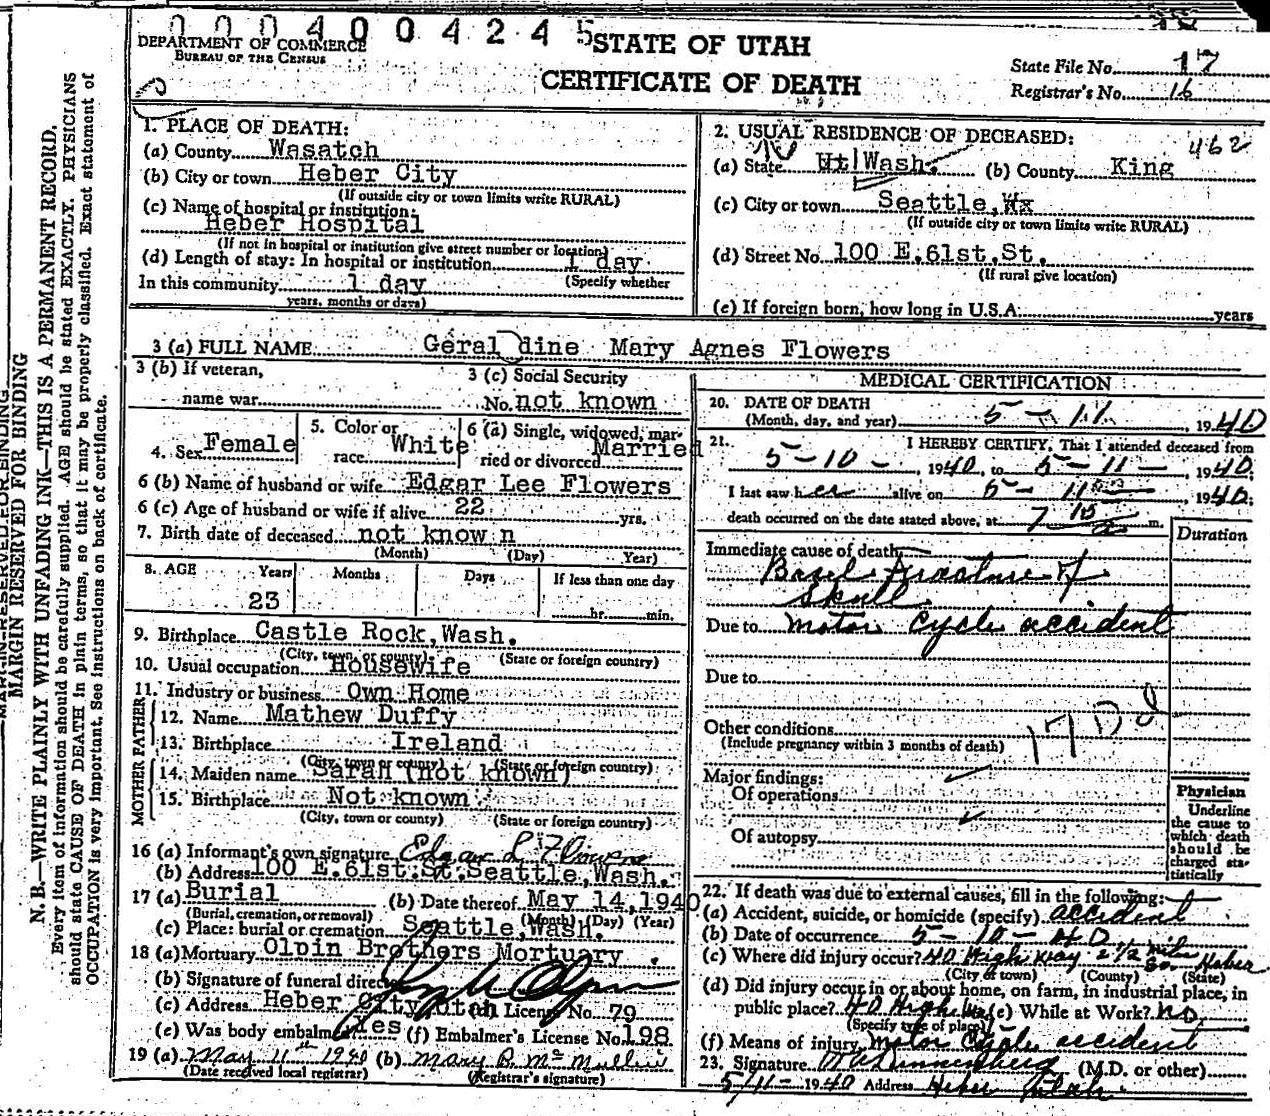 0 0 0 4 0 0 4 2 4 5
DEPARTMENT OF COMMERCE
BUREAU OF THE CENSUS
STATE OF UTAH
CERTIFICATE OF DEATH
State File No. 17
Registrar's No. 16
MARGIN RESERVED FOR BINDING
N. B.—WRITE PLAINLY WITH UNFADING INK—THIS IS A PERMANENT RECORD.
Every item of information should be carefully supplied. AGE should be stated EXACTLY. PHYSICIANS
should state CAUSE OF DEATH in plain terms, so that it may be properly classified. Exact statement of
OCCUPATION is very important. See instructions on back of certificate.
1. PLACE OF DEATH:
(a) County Wasatch
(b) City or town Heber City
(If outside city or town limits write RURAL)
(c) Name of hospital or institution:
Heber Hospital
(If not in hospital or institution give street number or location)
(d) Length of stay: In hospital or institution 1 day
(Specify whether
In this community 1 day
years, months or days)
2. USUAL RESIDENCE OF DECEASED:
462
(a) State Ut Wash. (b) County King
(c) City or town Seattle, Wx
(If outside city or town limits write RURAL)
(d) Street No 100 E. 61st. St.
(If rural give location)
(e) If foreign born, how long in U.S.A. years
3 (a) FULL NAME Geraldine Mary Agnes Flowers
3 (b) If veteran,
name war
3 (c) Social Security
No. not known
4. Sex Female
5. Color or
race White
6 (a) Single, widowed, mar-
ried or divorced Married
6 (b) Name of husband or wife Edgar Lee Flowers
6 (c) Age of husband or wife if alive 22 yrs.
7. Birth date of deceased not know n
(Month) (Day) Year)
8. AGE Years Months Days If less than one day
23 hr. min.
9. Birthplace Castle Rock, Wash.
(City, town, or county) (State or foreign country)
10. Usual occupation Housewife
11. Industry or business Own Home
FATHER
12. Name Mathew Duffy
13. Birthplace Ireland
(City, town or county) (State or foreign country)
MOTHER
14. Maiden name Sarah (not known)
15. Birthplace Not known
(City, town or county) (State or foreign country)
16 (a) Informant's own signature Edgar L Flowers
(b) Address 100 E. 61st. St. Seattle, Wash.
17 (a) Burial (b) Date thereof May 14, 1940
(Burial, cremation, or removal) (Month) (Day) (Year)
(c) Place: burial or cremation Seattle, Wash.
18 (a) Mortuary Olpin Brothers Mortuary .
(b) Signature of funeral director
(c) Address Heber City Utah (d) License No. 79
(e) Was body embalmed Yes (f) Embalmer's License No. 198
19 (a) May 11th 1940 (b) Mary B. McMullin
(Date received local registrar) (Registrar's signature)
MEDICAL CERTIFICATION
20. DATE OF DEATH
(Month, day, and year) 5 - 11 , 1940
21. I HEREBY CERTIFY, That I attended deceased from
5-10- , 1940, to 5-11- , 1940;
I last saw her alive on 5-11- , 1940;
death occurred on the date stated above, at 7 15 a m.
Duration
Immediate cause of death
Basel fracture of
Skull
Due to motor cycle accident
Due to
Other conditions
(Include pregnancy within 3 months of death)
170d
Major findings:
Of operations
Of autopsy
Physician
Underline
the cause to
which death
should be
charged sta-
tistically
22. If death was due to external causes, fill in the following:
(a) Accident, suicide, or homicide (specify) accident
(b) Date of occurrence 5-10-40
(c) Where did injury occur? 40 Highway 2 1/2 mile So. Heber
(City or town) (County) (State)
(d) Did injury occur in or about home, on farm, in industrial place, in
public place? 40 Highway (e) While at Work? no
(Specify type of place)
(f) Means of injury motor cycle accident
23. Signature (M.D. or other)
5/11- 1940 Address Heber Utah